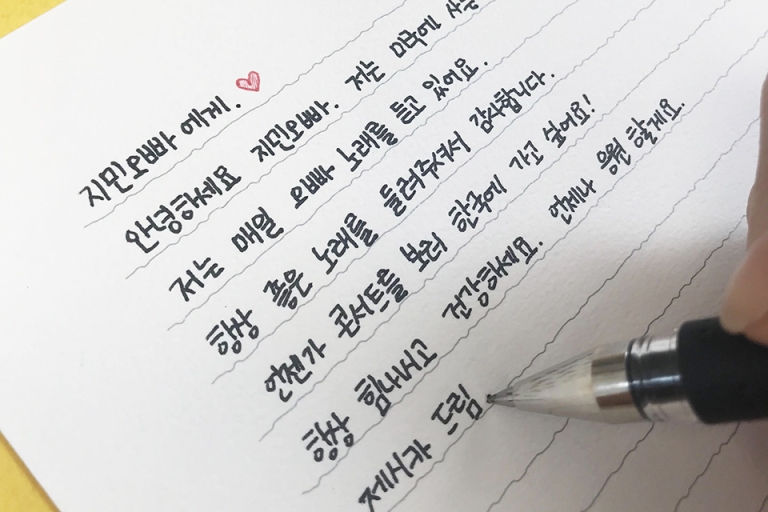 지민오빠에게.
안녕하세요 지민오빠. 저는 미국에
저는 매일 오빠 노래를 듣고 있어요.
항상 좋은 노래를 들려주셔서 감사합니다.
언젠가 콘서트를 보러 한국에 가고 싶어요!
항상 힘내시고 건강하세요. 언제나 응원 할게요.
제시카 드림